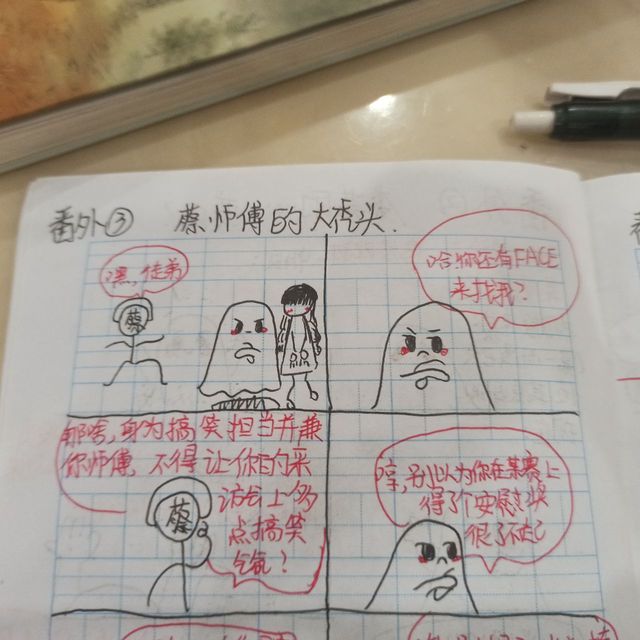 番外③ 蔡师傅的大秃头.
嘿,徒弟
蔡
哈!你还有FACE
来找我?
那啥,身为搞笑担当并兼
你师傅,不得让你的采
访上多
点搞笑
气氛?
蔡
哼,别以为你在某赛上
得了个安慰奖
很了不起